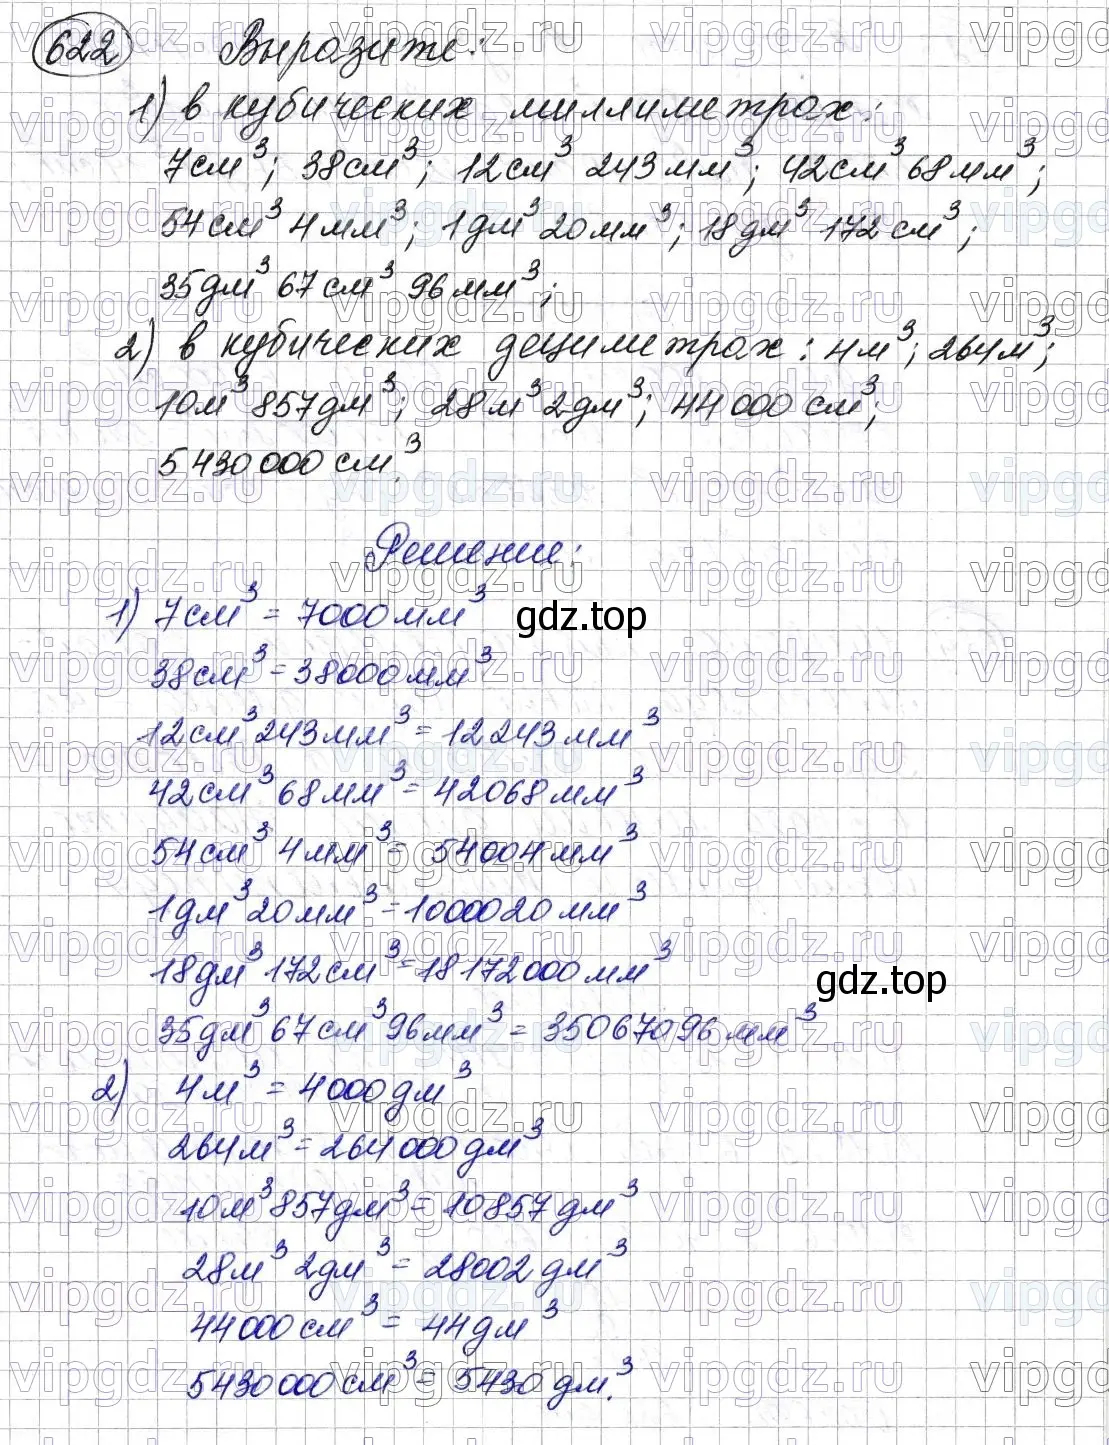 622 Выразите:
1) в кубических миллиметрах:
7см³; 38см³; 12см³ 243мм³; 42см³ 68мм³;
54см³ 4мм³; 1дм³ 20мм³; 18дм³ 172см³;
35дм³ 67см³ 96мм³;
2) в кубических дециметрах: 4м³; 264м³;
10м³ 857дм³; 28м³ 2дм³; 44 000 см³;
5 430 000 см³.
Решение:
1) 7см³ = 7000мм³
gdz.top
38см³ = 38000мм³
12см³ 243мм³ = 12 243мм³
42см³ 68мм³ = 42068мм³
54см³ 4мм³ = 54004мм³
1дм³ 20мм³ = 1000020мм³
18дм³ 172см³ = 18 172 000мм³
gdz.top
35дм³ 67см³ 96мм³ = 35067096мм³
2) 4м³ = 4000дм³
264м³ = 264 000дм³
10м³ 857дм³ = 10857дм³
28м³ 2дм³ = 28002дм³
44 000 см³ = 44дм³
5430 000 см³ = 5430 дм³.
vipgdz.ru